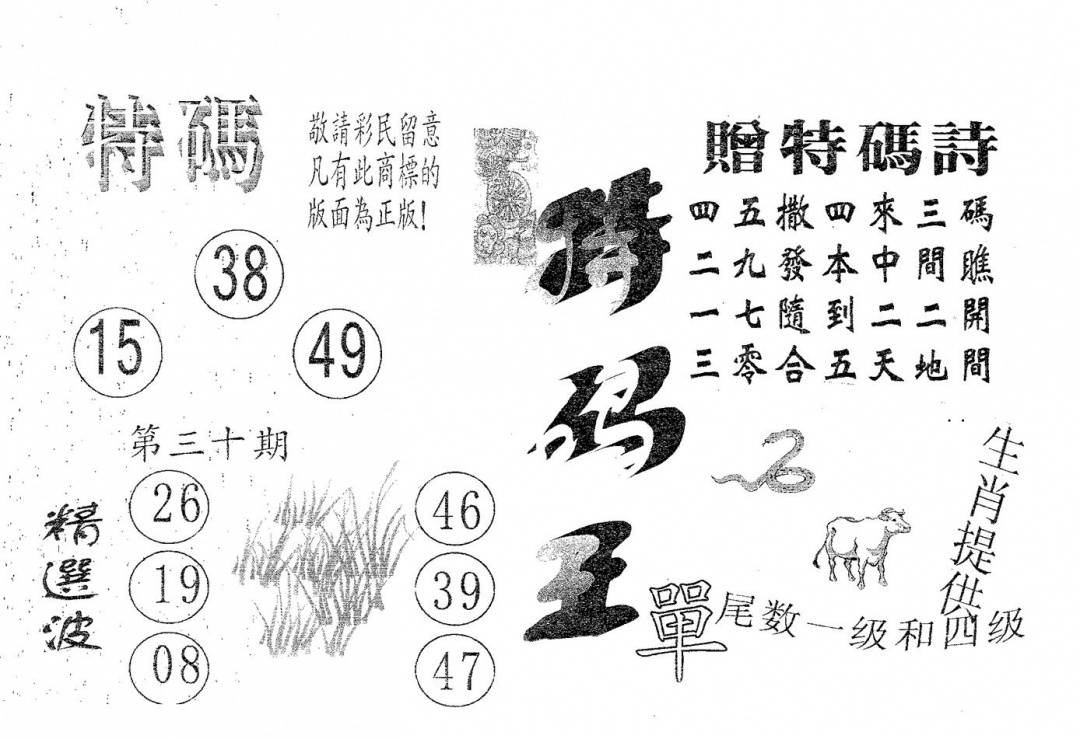 特碼
敬請彩民留意
凡有此商標的
版面為正版!
38
15
49
第三十期
精選波
26
19
08
46
39
47
特码王
贈特碼詩
四五撒四來三碼
二九發本中間瞧
一七隨到二二開
三零合五天地間
生肖提供
單
尾数一级和四级